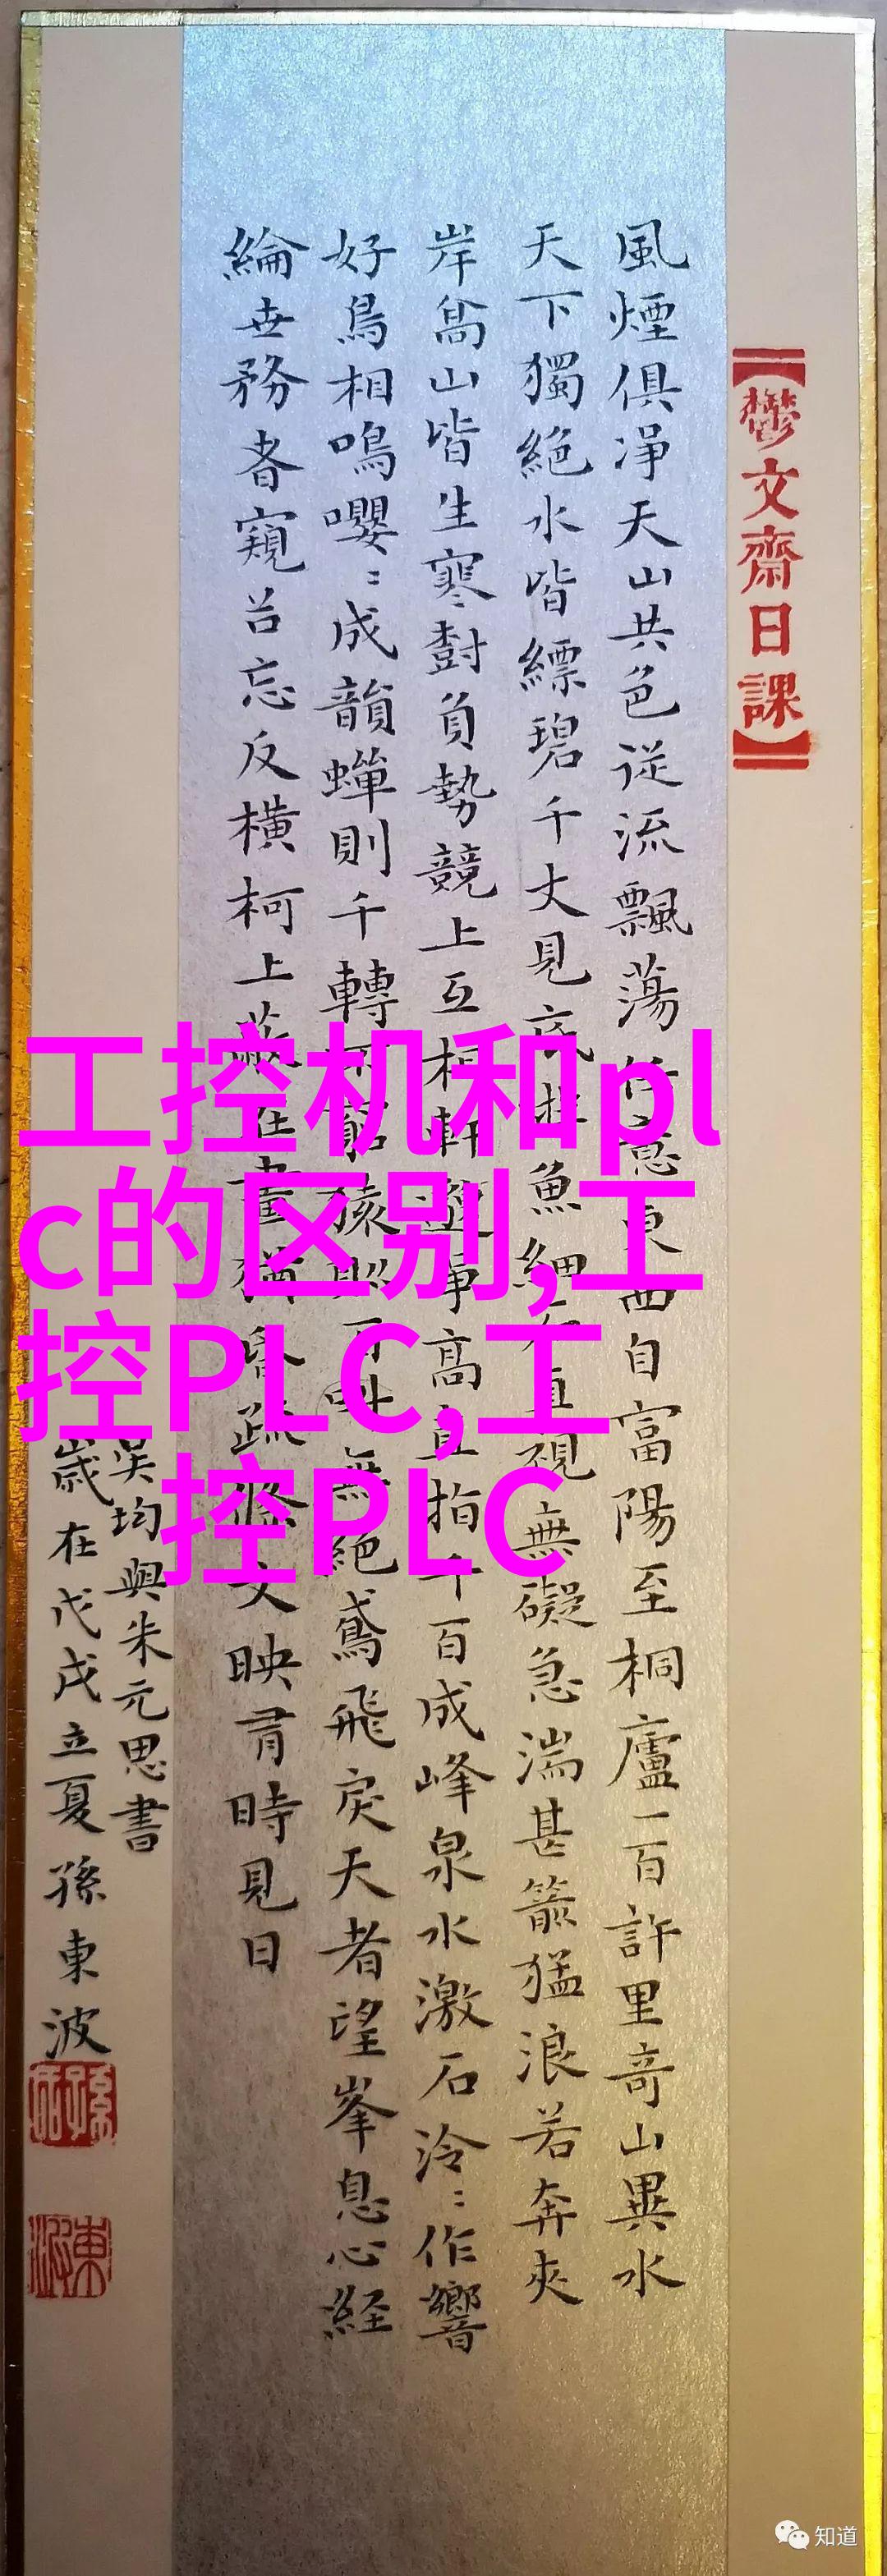 【鬱文齋日課】
風煙俱淨天山共色從流飄蕩任意東西自富陽至桐廬一百許里奇山異水
天下獨絕水皆縹碧千丈見底游魚細石直視無礙急湍甚箭猛浪若奔夾
岸高山皆生寒對負勢競上互相軒邈爭高直指千百成峰泉水激石泠﹕作響
好鳥相鳴嚶﹕成韻蟬則千轉不窮猿則百叫無絕鳶飛戾天者望峯息心経
綸世務者窺谷忘反橫柯上蔽在晝猶昏疏條交映有時見日
吴均與朱元思書
歲在戊戌立夏孫東波
工控机和pl
c的区别,工
控PLC,工
控PLC
知道